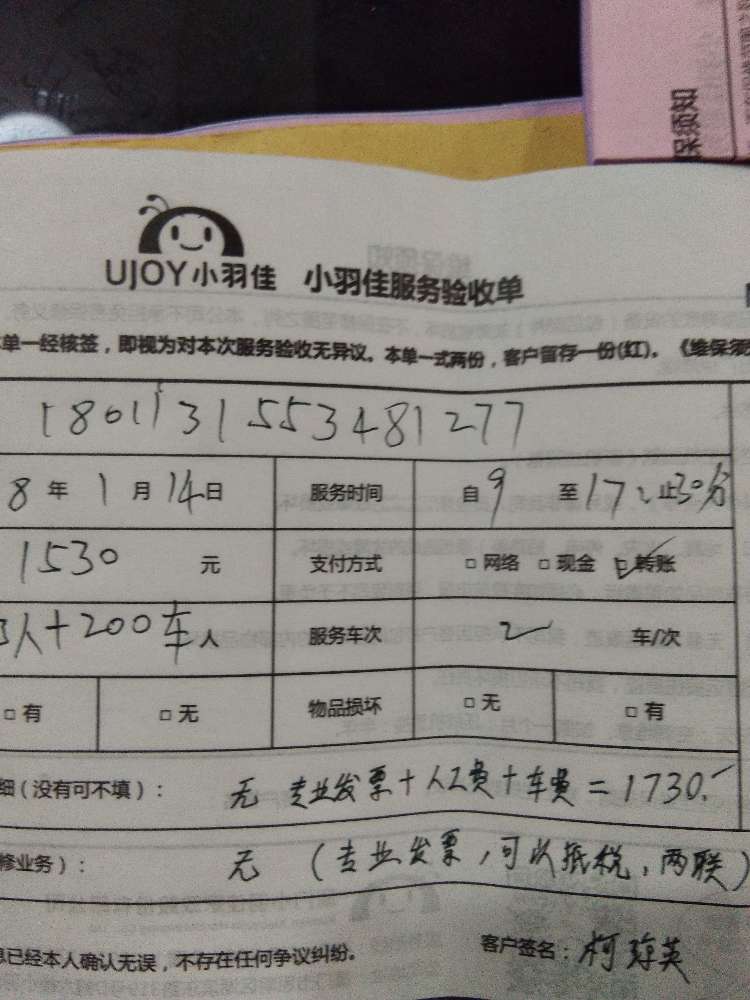 保须知
UJOY小羽佳 小羽佳服务验收单
单一经核签，即视为对本次服务验收无异议。本单一式两份，客户留存一份(红)。《维保须
18011315553481277
8年1月14日 服务时间 自9至17:止30分
1530元 支付方式 □网络 □现金 ☑转账
人+200车人 服务车次 2车/次
□有 □无 物品损坏 □无 □有
细（没有可不填）： 无 专业发票+人工费+车费=1730.-
修业务）： 无 （专业发票，可以抵税，两联）
息已经本人确认无误，不存在任何争议纠纷。 客户签名：柯 英